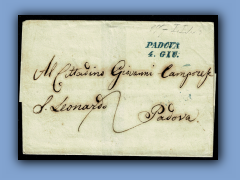 PADOVA
4. GIU.
Al Cittadino Giovanni Camporese
S. Leonardo 2 Padova